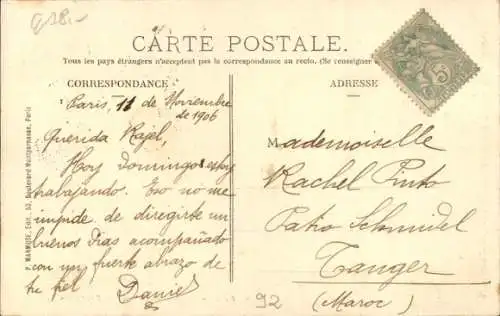 CARTE POSTALE.
Tous les pays étrangers n'acceptent pas la correspondance au recto. (Se renseigner
CORRESPONDANCE
ADRESSE
Paris, 11 de Novembre
de 1906
Querida Rajel,
Hoy Domingo estoy
trabajando. Eso no me
impide de diregirte un
buenos Dias acompañado
con un fuerte abrazo de
tu fiel
Daniel
Mademoiselle
Rachel Pinto
Patio Schmidel
Tanger
(Maroc)
92
Edit., 53, Boulevard Montparnasse, Paris
5